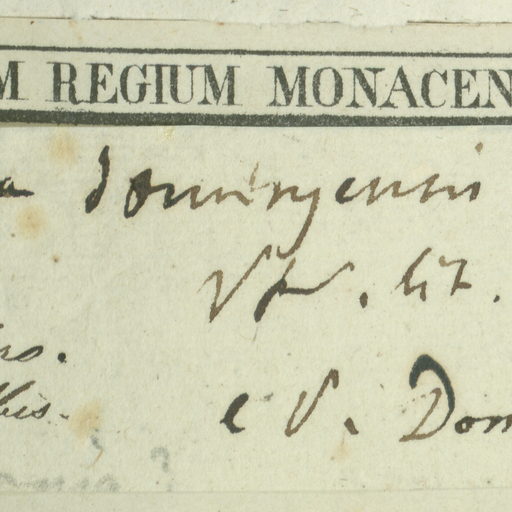 M REGIUM MONACEN
a domingensis
Spr. lit.
bis.
e S. Dom